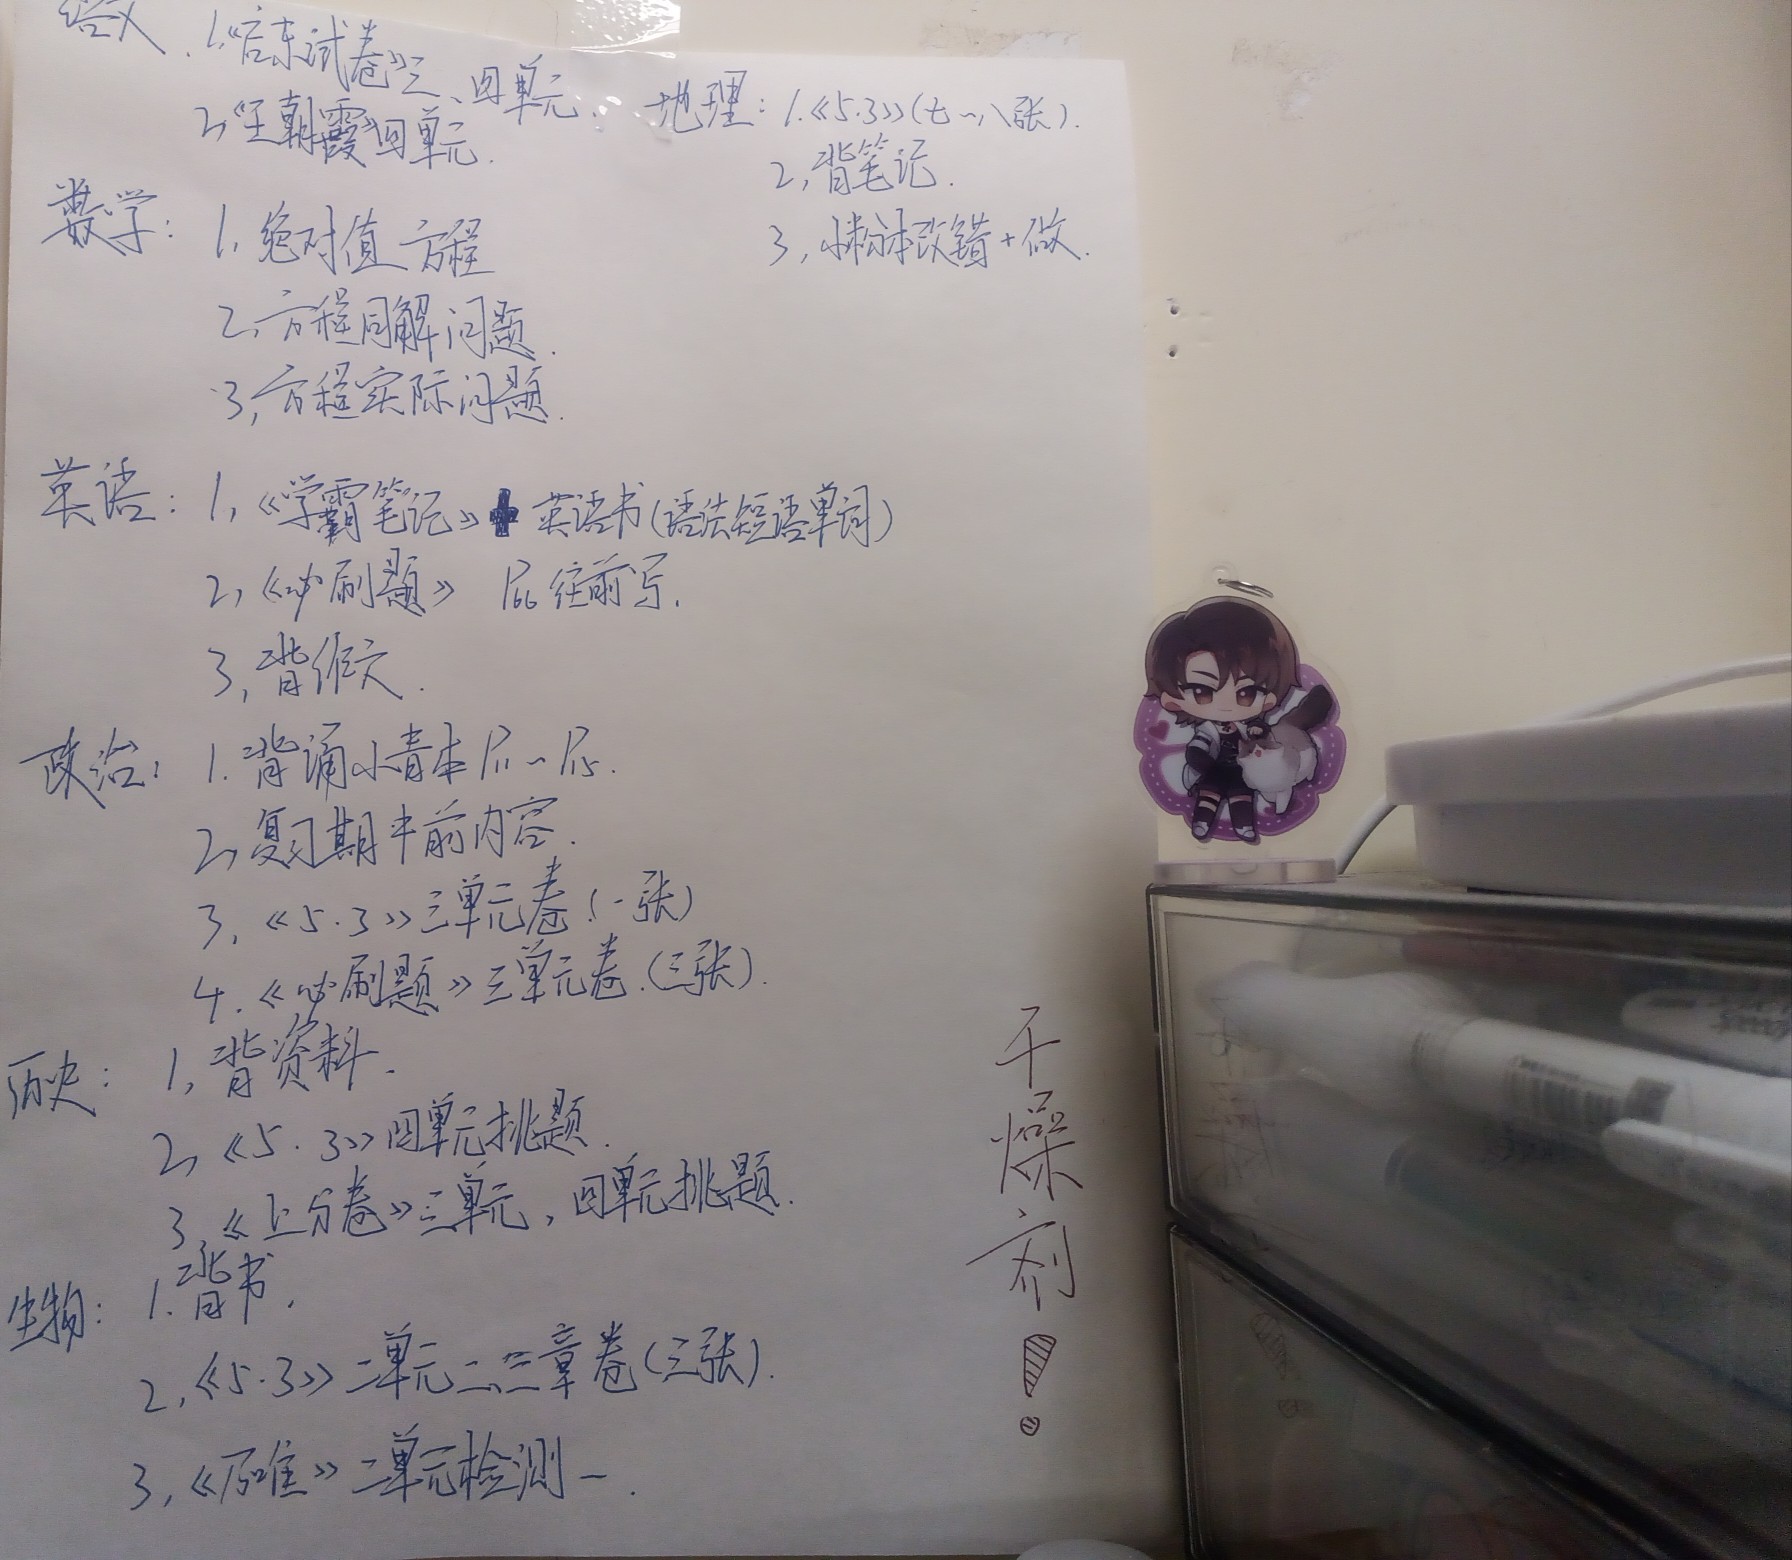 语文、1,《启东试卷》三、四单元.
2,《王朝霞》四单元.
数学: 1, 绝对值方程
2, 方程同解问题.
3, 方程实际问题.
英语: 1,《学霸笔记》+ 英语书(语法短语单词)
2,《必刷题》 P66往前写.
3, 背作文.
政治: 1. 背诵小青本 P1~P15.
2, 复习期中前内容.
3,《5·3》三单元卷(一张)
4.《必刷题》三单元卷.(三张).
历史: 1, 背资料.
2,《5·3》四单元挑题.
3,《上分卷》三单元, 四单元挑题.
生物: 1. 背书.
2,《5·3》二单元二、三章卷(三张).
3,《 》二单元检测一.
地理: 1.《5·3》(七~八张).
2, 背笔记.
3, 小粉本改错+做.
干燥剂!